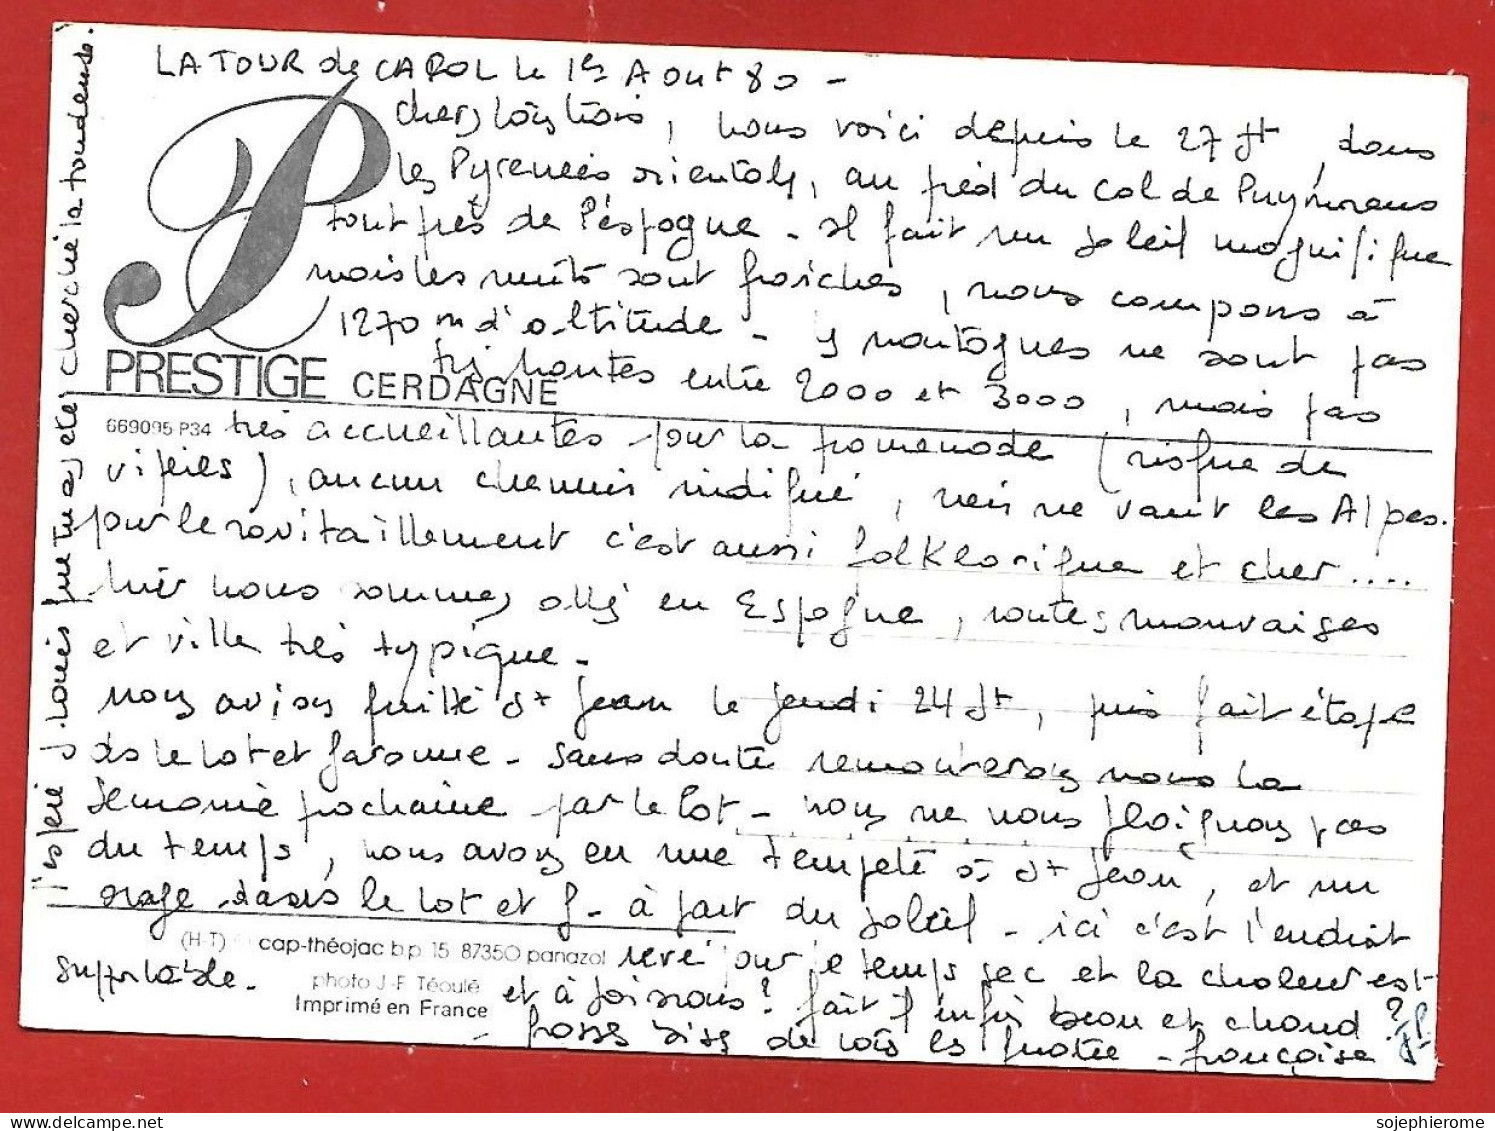 LA TOUR de CAROL le 1er Aout 80 -
chers tous trois, nous voici depuis le 27 Jt, dans
les Pyrenées orientales, au pied du col de Puymorens
tout près de l'espagne - il fait un soleil magnifique
mais les nuits sont fraiches, nous campons à
1270 m d'altitude - les montagnes ne sont pas
très hautes entre 2000 et 3000, mais pas
PRESTIGE CERDAGNE
669095 P34 très accueillantes pour la promenade (risque de
vipères), aucun chemin indiqué, rien ne vaut les Alpes.
pour le ravitaillement c'est aussi folklorique et cher....
hier nous sommes allés en Espagne, routes mauvaises
et ville très typique -
nous avions quitté St Jean le jeudi 24 Jt, puis fait étape
ds le lot et garonne - sans doute remonterons nous la
semaine prochaine par le lot - nous ne nous plaignons pas
du temps, nous avons eu une tempête à St Jean, et un
orage dans le lot et g - à part du soleil - ici c'est l'endroit
(H-T) cap-théojac b.p. 15 87350 panazol
rêvé pour le temps sec et la chaleur est
supportable.
photo J-F Téoulé
Imprimé en France
et à Joissous? fait il enfin beau et chaud?
- grosses bises de tous les quatre - françoise
J'espère J. Louis que tu as été cherché la tondeuse.
sojephierome